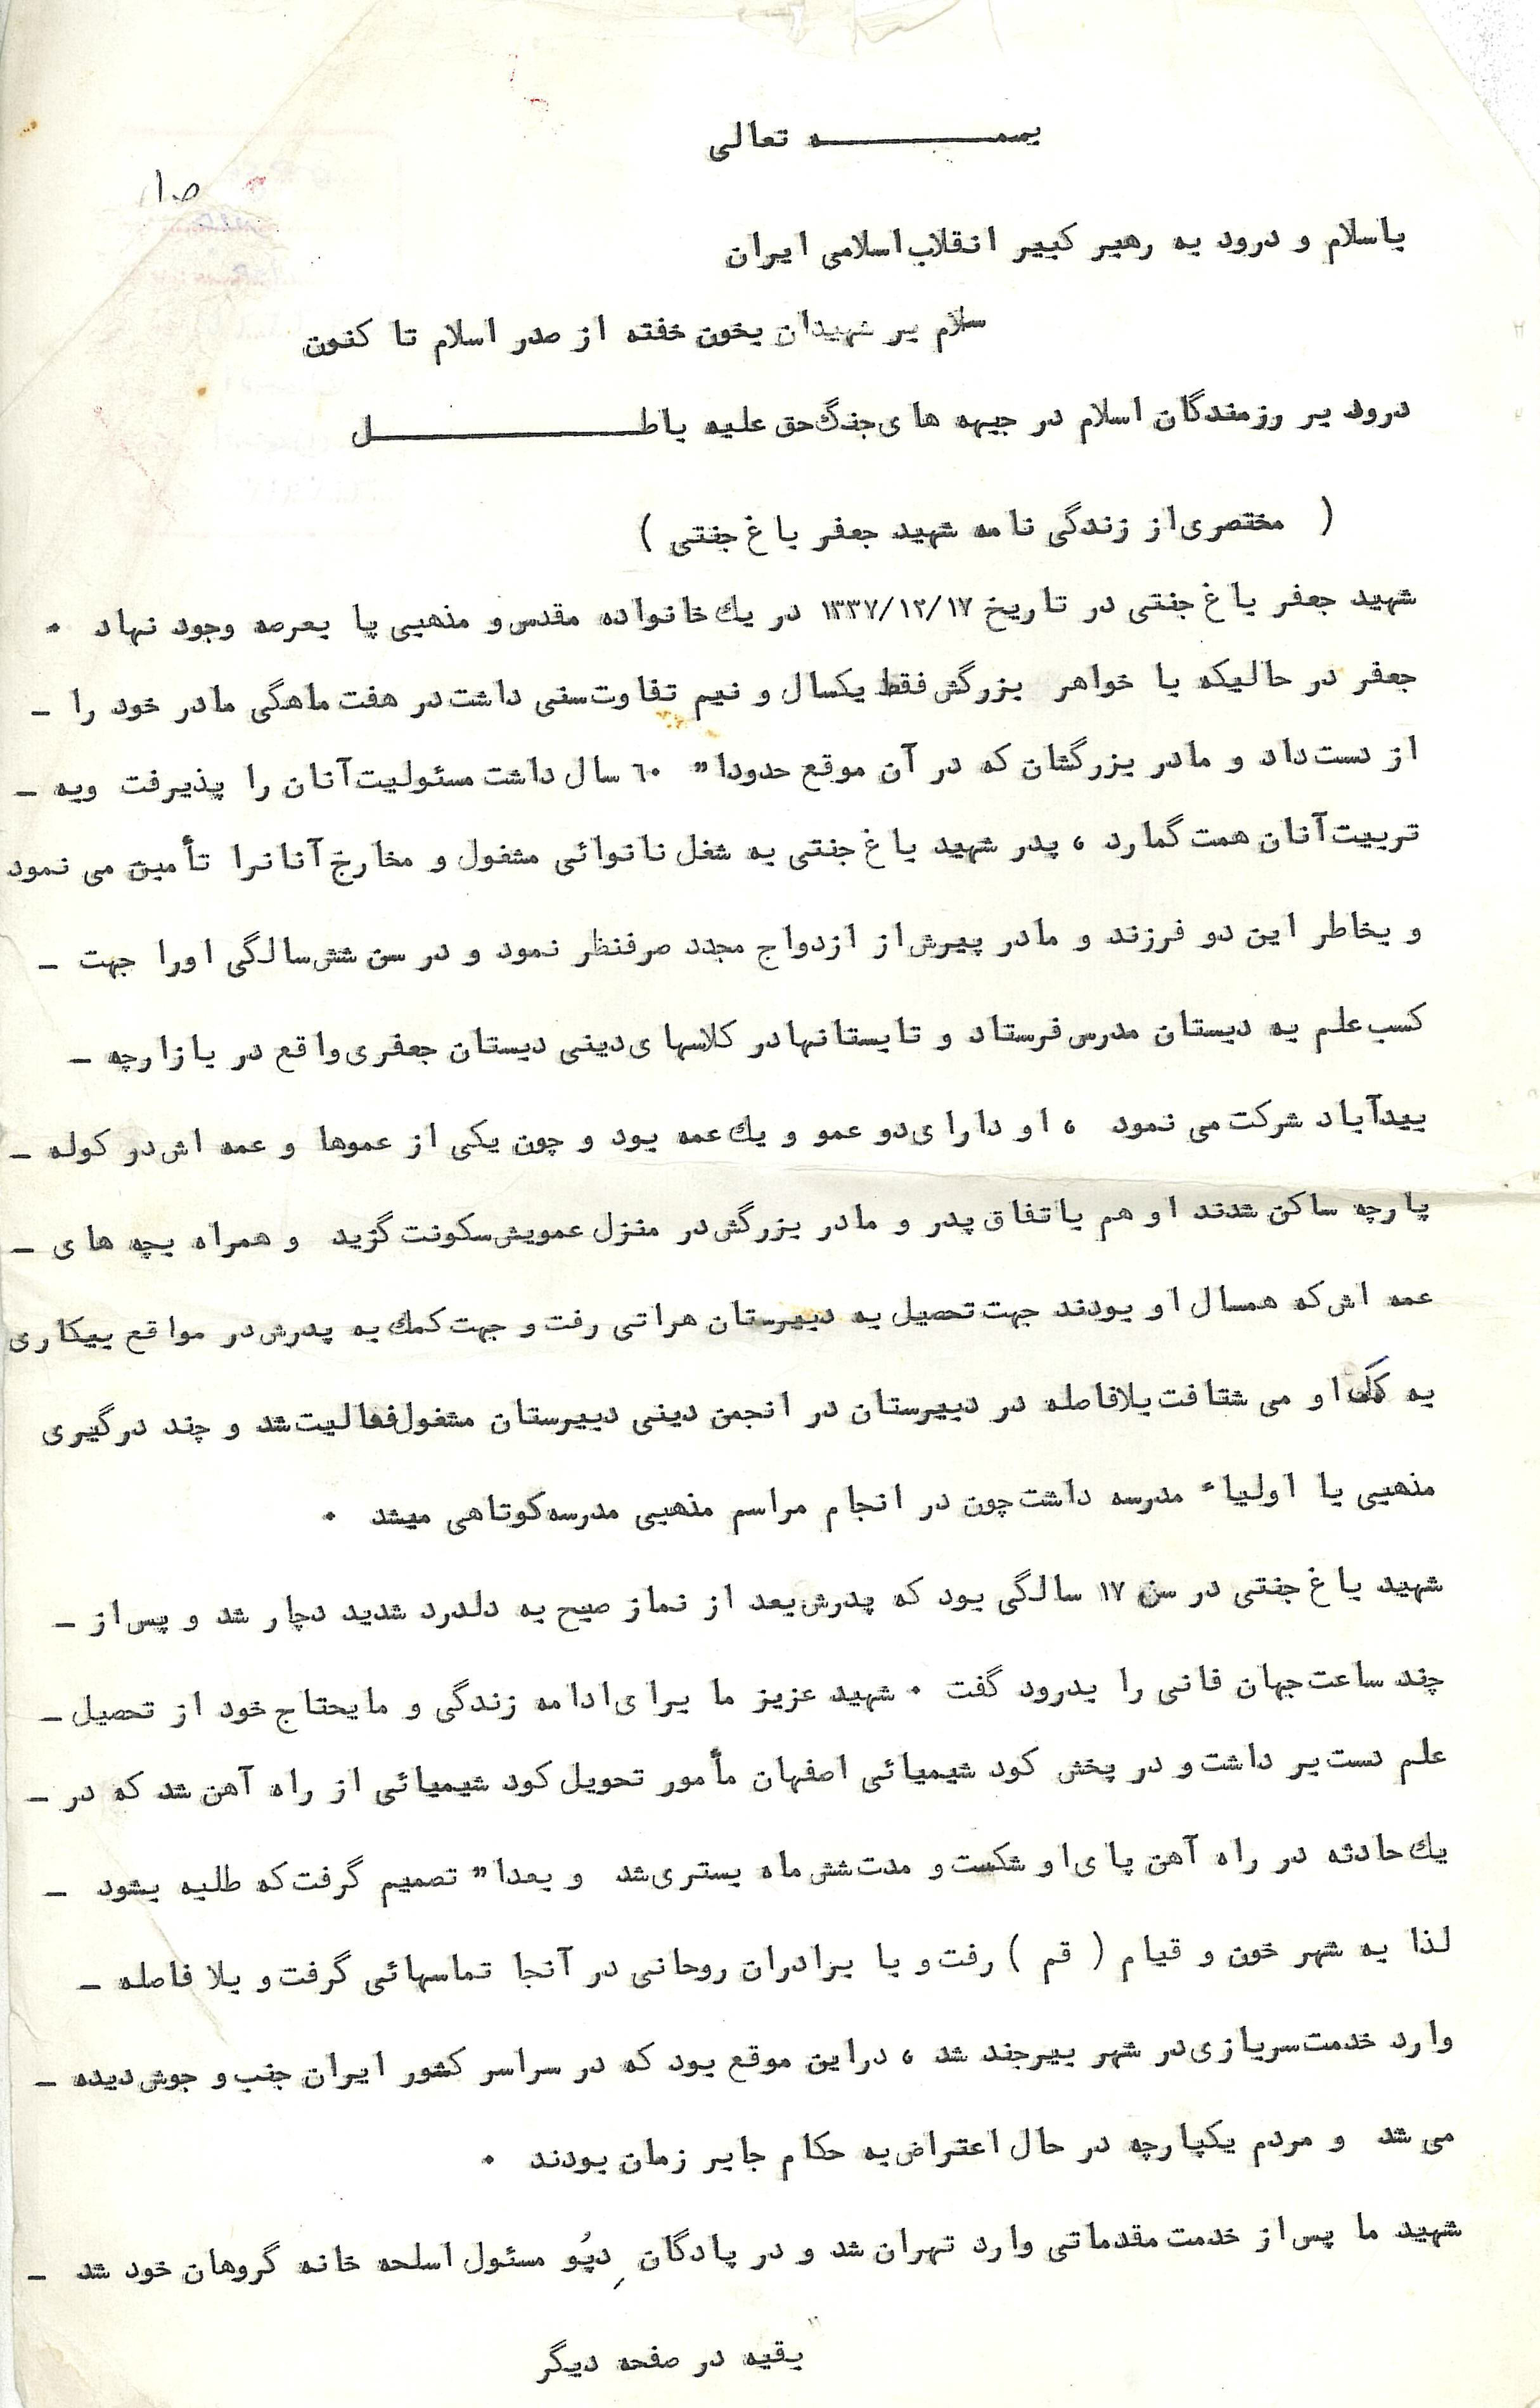 بسمــــــــه تعالی
ص ۱
باسلام و درود به رهبر کبیر انقلاب اسلامی ایران
سلام بر شهیدان بخون خفته از صدر اسلام تا کنون
درود بر رزمندگان اسلام در جبهه های جنگ حق علیه باطــــــــــــل
( مختصری از زندگی نامه شهید جعفر باغ جنتی )
شهید جعفر باغ جنتی در تاریخ ۱۳۳۷/۱۲/۱۷ در یك خانواده مقدس و مذهبی پا بعرصه وجود نهاد ۰
جعفر در حالیکه با خواهر بزرگش فقط یکسال و نیم تفاوت سنی داشت در هفت ماهگی مادر خود را -
از دست داد و مادر بزرگشان که در آن موقع حدودا" ۶۰ سال داشت مسئولیت آنان را پذیرفت وبه -
تربیت آنان همت گمارد ، پدر شهید باغ جنتی به شغل نانوائی مشغول و مخارج آنانرا تأمین می نمود
و بخاطر این دو فرزند و مادر پیرش از ازدواج مجدد صرفنظر نمود و در سن شش سالگی اورا جهت -
کسب علم به دبستان مدرس فرستاد و تابستانها در کلاسهای دینی دبستان جعفری واقع در بازارچه -
بیدآباد شرکت می نمود ، او دارای دو عمو و یك عمه بود و چون یکی از عموها و عمه اش در کوله -
پارچه ساکن شدند او هم باتفاق پدر و مادر بزرگش در منزل عمویش سکونت گزید و همراه بچه های -
عمه اش که همسال او بودند جهت تحصیل به دبیرستان هراتی رفت و جهت کمك به پدرش در مواقع بیکاری
به کمک او می شتافت بلافاصله در دبیرستان در انجمن دینی دبیرستان مشغول فعالیت شد و چند درگیری
مذهبی با اولیاء مدرسه داشت چون در انجام مراسم مذهبی مدرسه کوتاهی میشد ۰
شهید باغ جنتی در سن ۱۷ سالگی بود که پدرش بعد از نماز صبح به دلدرد شدید دچار شد و پس از -
چند ساعت جهان فانی را بدرود گفت ۰ شهید عزیز ما برای ادامه زندگی و مایحتاج خود از تحصیل -
علم دست بر داشت و در پخش کود شیمیائی اصفهان مأمور تحویل کود شیمیائی از راه آهن شد که در -
یك حادثه در راه آهن پای او شکست و مدت شش ماه بستری شد و بعدا" تصمیم گرفت که طلبه بشود -
لذا به شهر خون و قیام ( قم ) رفت و با برادران روحانی در آنجا تماسهائی گرفت و بلا فاصله -
وارد خدمت سربازی در شهر بیرجند شد ، دراین موقع بود که در سراسر کشور ایران جنب و جوش دیده -
می شد و مردم یکپارچه در حال اعتراض به حکام جابر زمان بودند ۰
شهید ما پس از خدمت مقدماتی وارد تهران شد و در پادگان دِپُو مسئول اسلحه خانه گروهان خود شد -
بقیه در صفحه دیگر